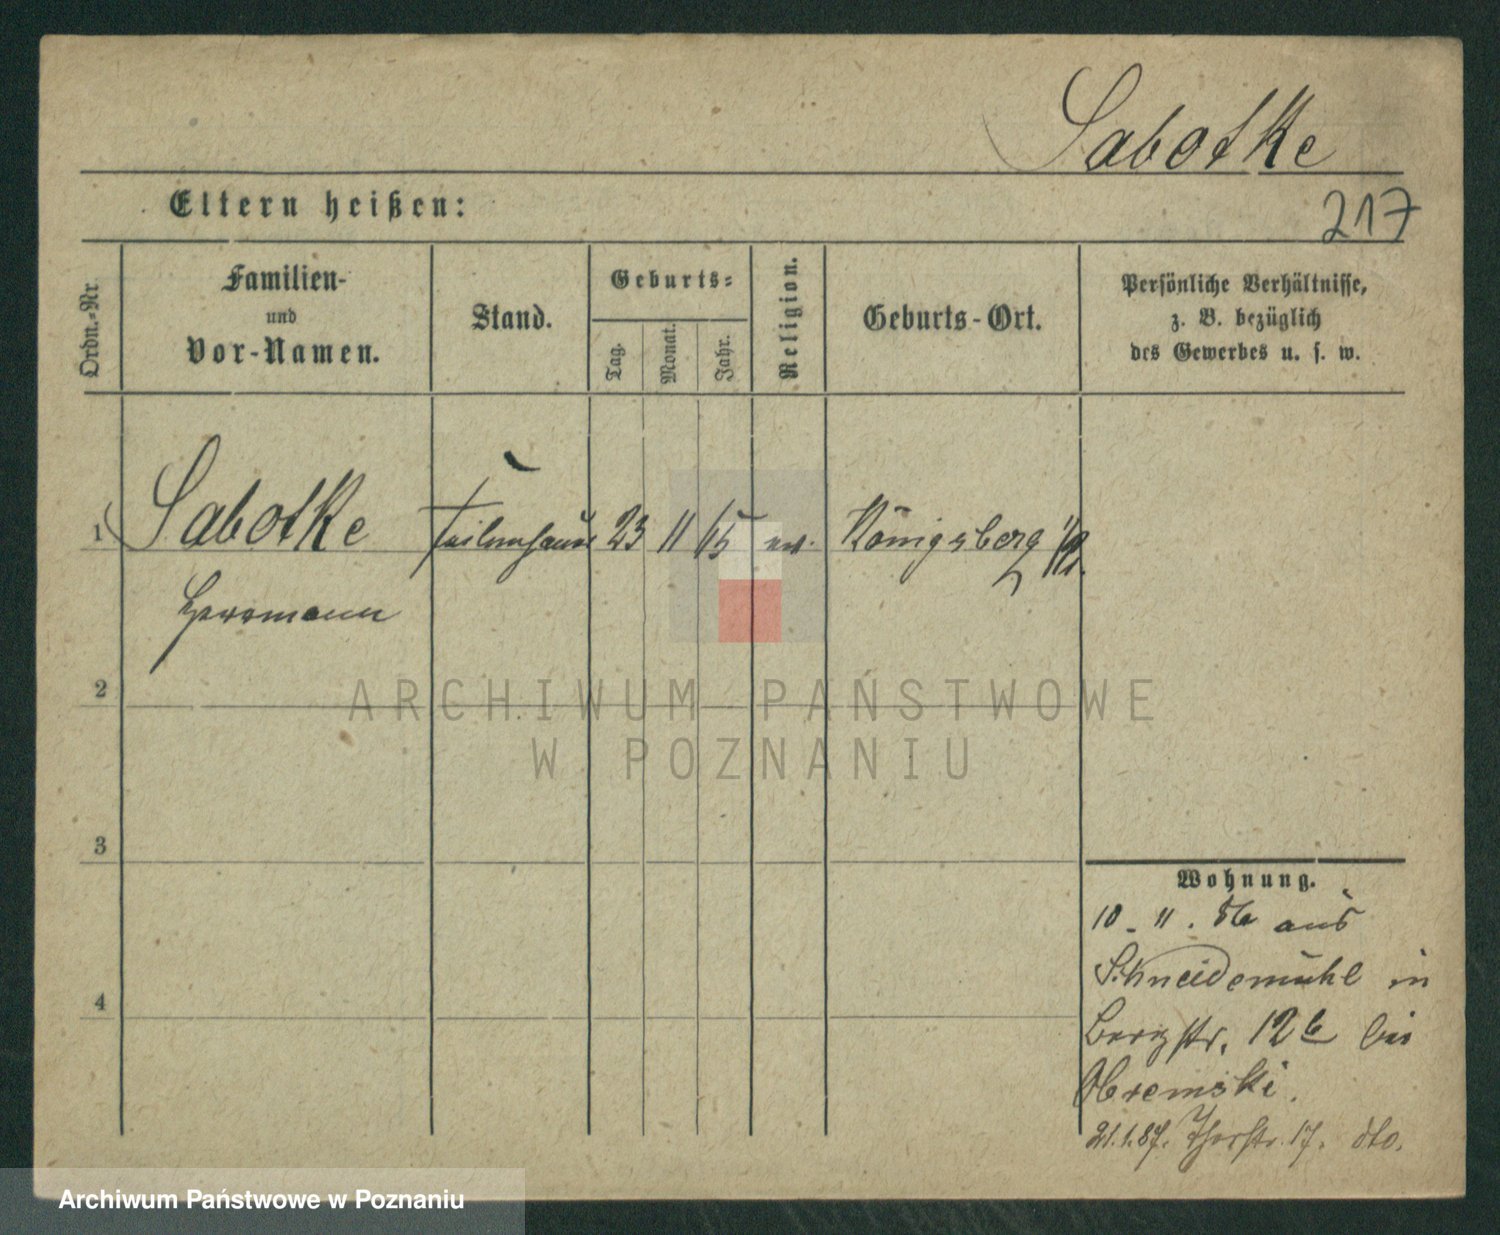 Sabotke
217
Eltern heißen:
Ordn.-Nr.
Familien-
und
Vor-Namen.
Stand.
Geburts-
Tag.
Monat.
Jahr.
Religion.
Geburts-Ort.
Persönliche Verhältnisse,
z. B. bezüglich
des Gewerbes u. s. w.
1 Sabotke 23 11 15 ev. Königsberg
Herrmann
2
3
4
ARCHIWUM PAŃSTWOWE
W POZNANIU
Wohnung.
10. 11. 86 aus
Schneidemühl in
Bergstr. 12 b bei
Obremski.
21.1.87. Thorstr. 17. dto.
Archiwum Państwowe w Poznaniu